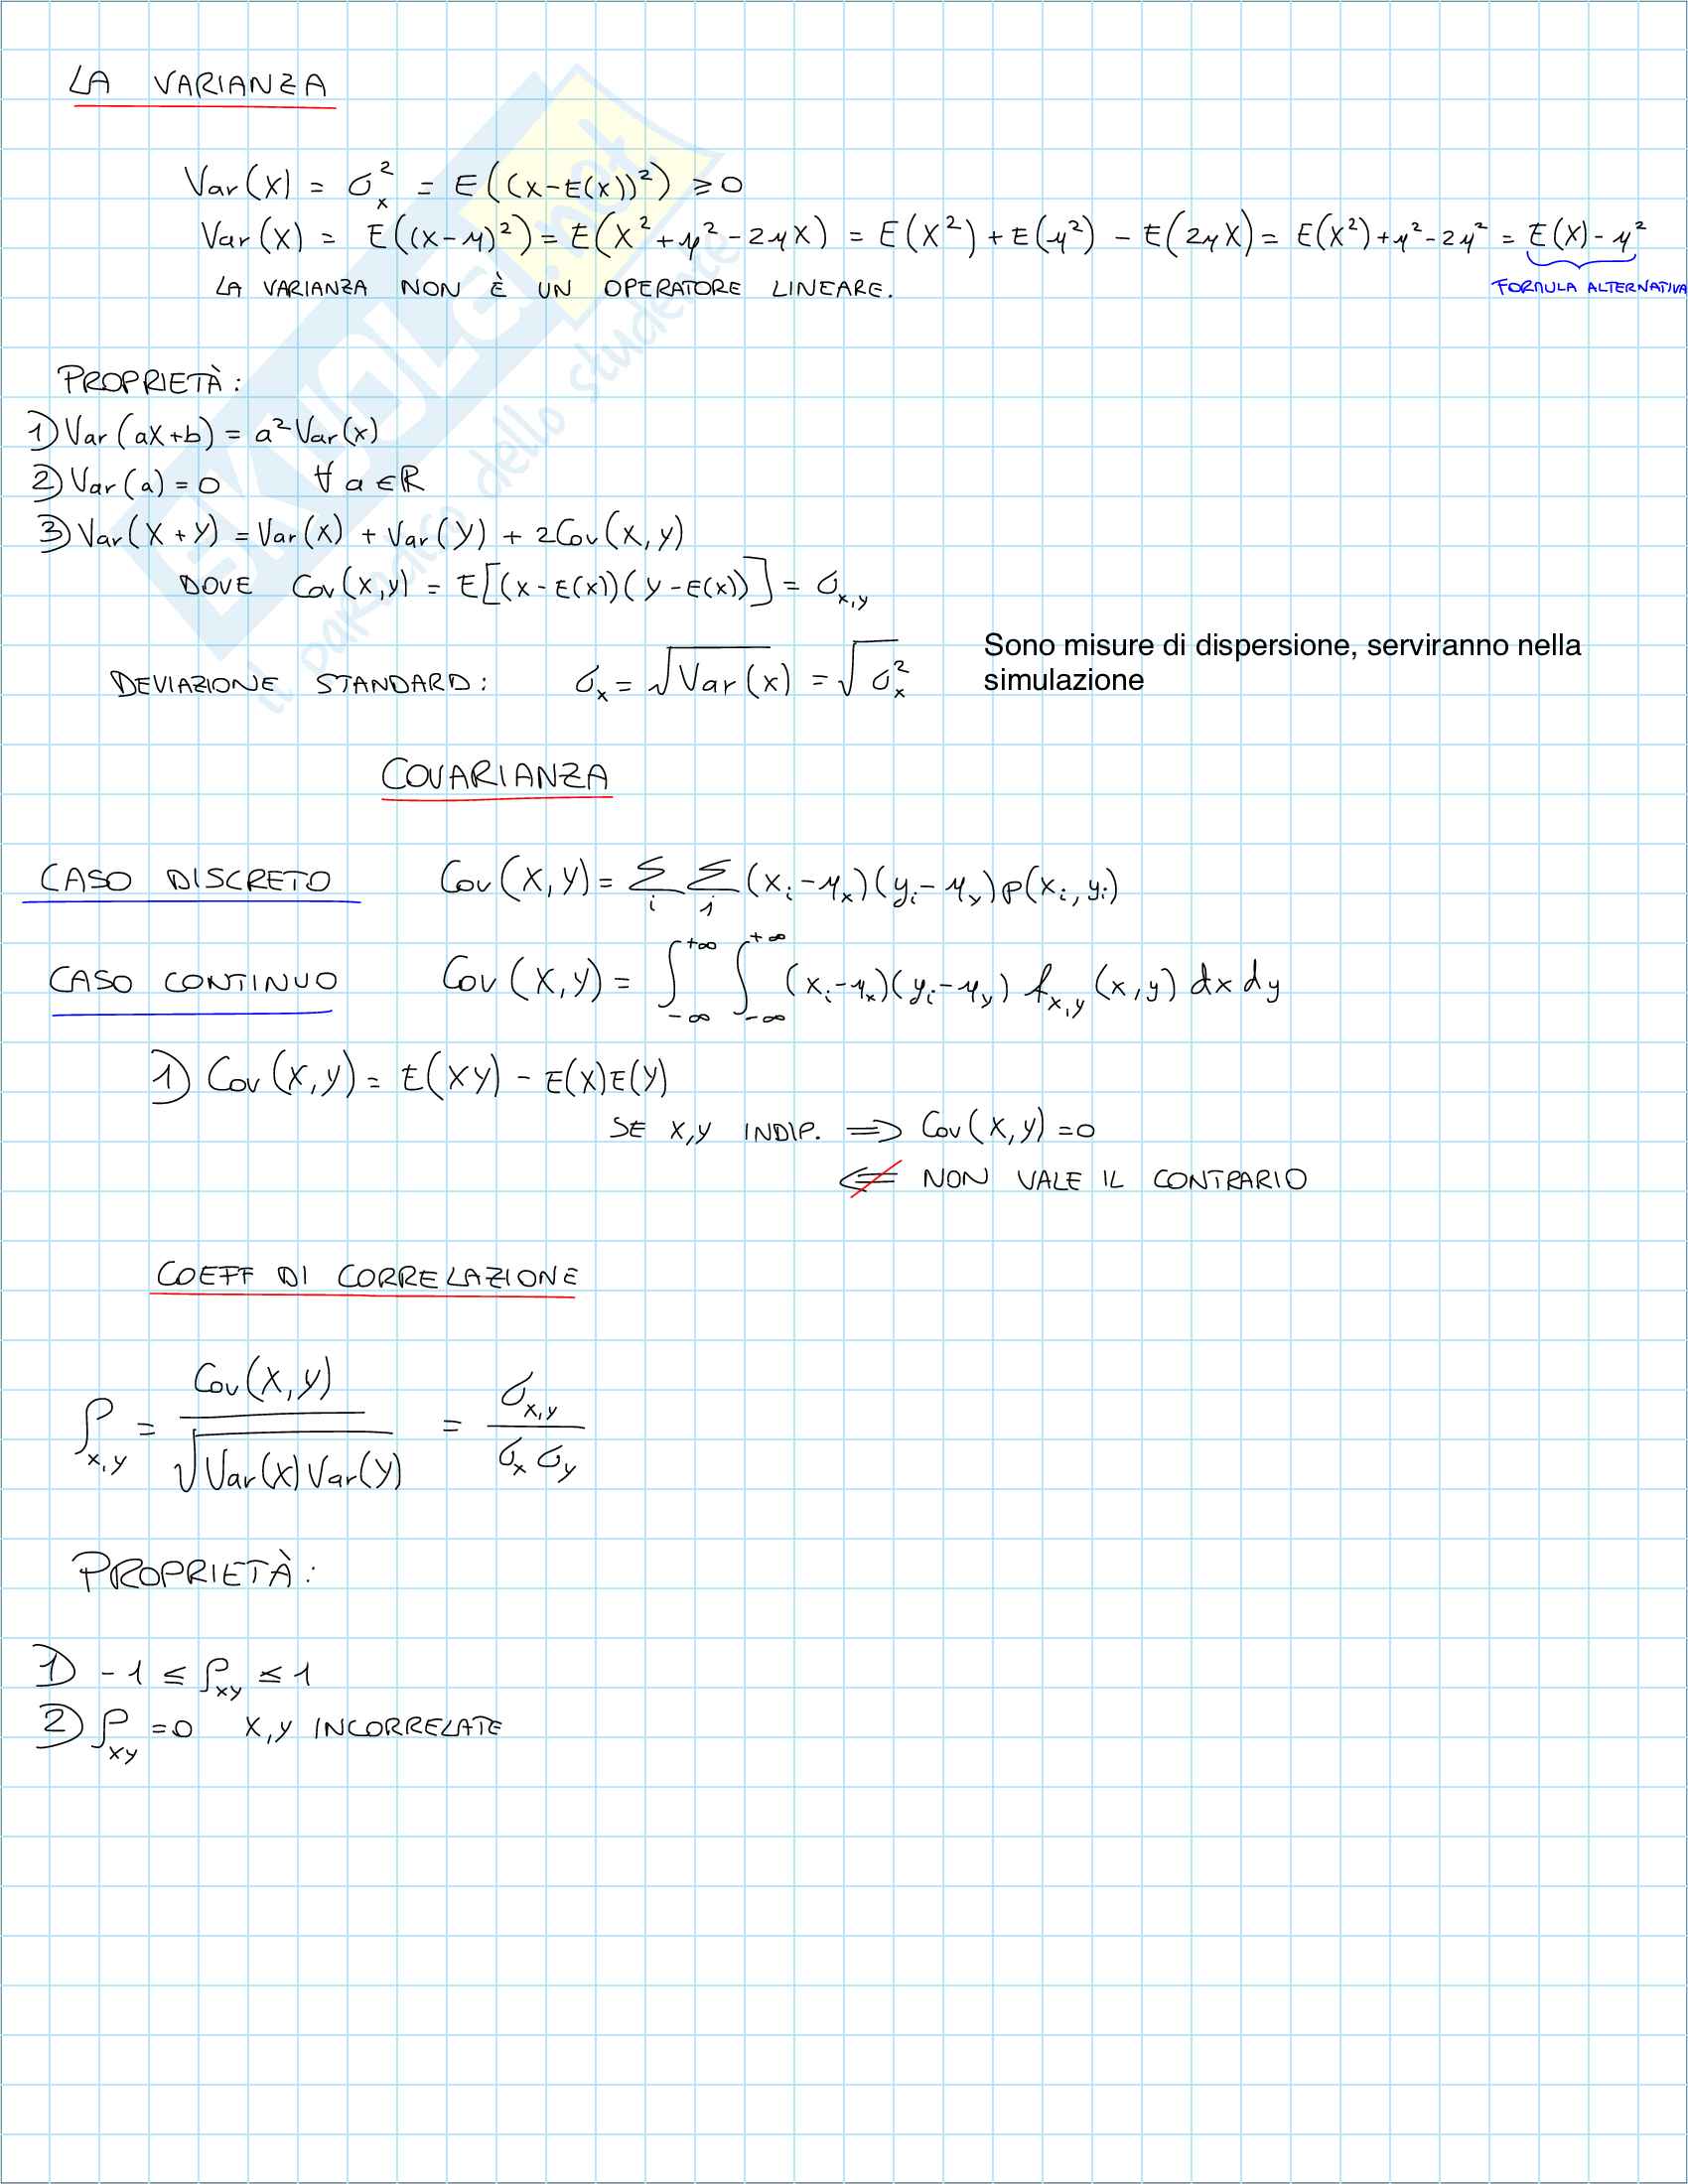 LA VARIANZA
Var(X) = σ²ₓ = E((X-E(X))²) ≥ 0
Var(X) = E((X-μ)²) = E(X²+μ²-2μX) = E(X²)+E(μ²) - E(2μX) = E(X²)+μ²-2μ² = E(X)-μ²
FORMULA ALTERNATIVA
LA VARIANZA NON È UN OPERATORE LINEARE.
PROPRIETÀ:
1) Var(aX+b) = a²Var(x)
2) Var(a) = 0 ∀ a ∈ ℝ
3) Var(X+Y) = Var(X) + Var(Y) + 2Cov(X,Y)
DOVE Cov(X,Y) = E[(X-E(X))(Y-E(X))] = σ_x,y
DEVIAZIONE STANDARD: σₓ = √Var(x) = √σ²ₓ
Sono misure di dispersione, serviranno nella
simulazione
COVARIANZA
CASO DISCRETO Cov(X,Y) = Σ_i Σ_j (x_i-μ_x)(y_i-μ_y)p(x_i,y_i)
CASO CONTINUO Cov(X,Y) = ∫_-∞^+∞ ∫_-∞^+∞ (x_i-μ_x)(y_i-μ_y) f_x,y(x,y) dx dy
1) Cov(X,Y) = E(XY) - E(X)E(Y)
SE X,Y INDIP. ⇒ Cov(X,Y)=0
⇍ NON VALE IL CONTRARIO
COEFF DI CORRELAZIONE
ρ_x,y = Cov(X,Y) / √Var(X)Var(Y) = σ_x,y / σ_x σ_y
PROPRIETÀ:
1) -1 ≤ ρ_xy ≤ 1
2) ρ_xy = 0 X,Y INCORRELATE
SKUOLA.net
il paradiso dello studente